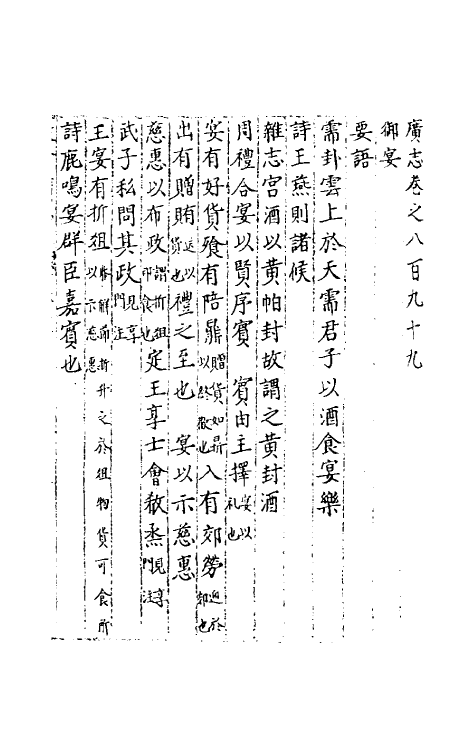 廣志卷之八百九十九
御宴
要語
需卦雲上於天需君子以酒食宴樂
詩王燕則諸侯
雜志宮酒以黃帕封故謂之黃封酒
周禮合宴以賢序賓 賓由主擇宴以礼也
宴有好貨飱有陪鼎贈貨如鼎以終敬也入有郊勞迎於郊也
出有贈賄送以貨也禮之至也 宴以示慈惠
慈惠以布政謂折俎即食也定王享士會殽烝見享門注
武子私問其政見享門注
王宴有折俎解節折升之於俎物貨可食所以示慈惠
詩鹿鳴宴群臣嘉賓也